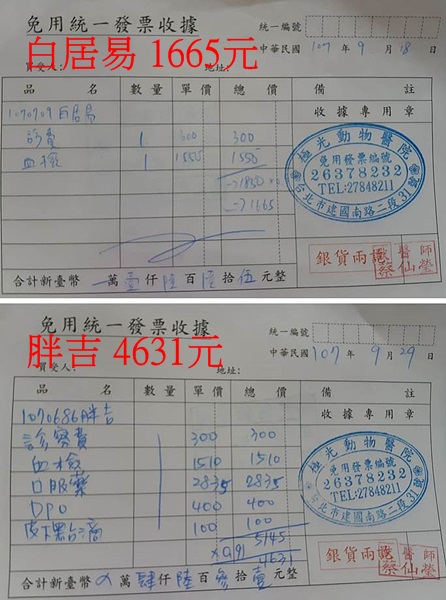 免用統一發票收據
統一編號
白居易 1665元
中華民國 107 年 9 月 18 日
買受人: 地址:
品名 數量 單價 總價 備註
1070709白居易 收據專用章
診費 1 300 300
血檢 1 1550 1550
→1850×
→1665
極光動物醫院
免用發票編號
26378232
TEL:27848211
台北市建國南路二段31號
銀貨兩訖
醫師
蔡仙瑩
合計新臺幣 萬壹仟陸百陸拾伍元整
免用統一發票收據
統一編號
胖吉 4631元
中華民國 107 年 9 月 29 日
買受人: 地址:
品名 數量 單價 總價 備註
1070686胖吉 收據專用章
診察費 300 300
血檢 1510 1510
口服藥 2835 2835
DPO 400 400
皮下點滴 100 100
5145
×0.9
4631
極光動物醫院
免用發票編號
26378232
TEL:27848211
台北市建國南路二段31號
銀貨兩訖
醫師
蔡仙瑩
合計新臺幣 萬肆仟陸百參拾壹元整